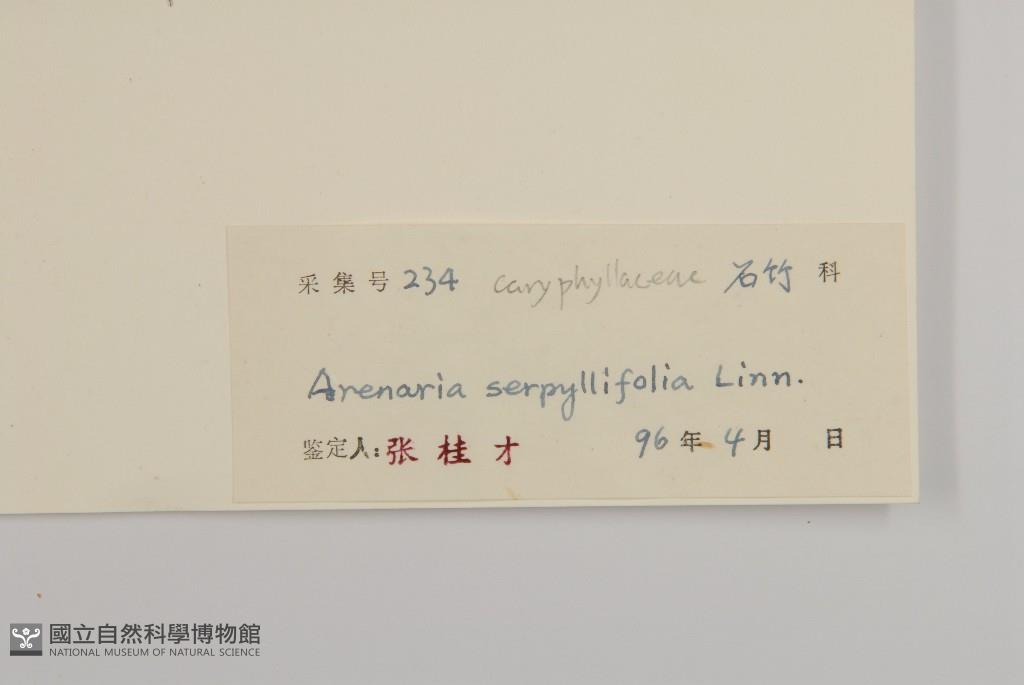 采集号 234 caryphyllaceae 石竹 科
Arenaria serpyllifolia Linn.
鉴定人: 张桂才 96 年 4 月 日
國立自然科學博物館
NATIONAL MUSEUM OF NATURAL SCIENCE